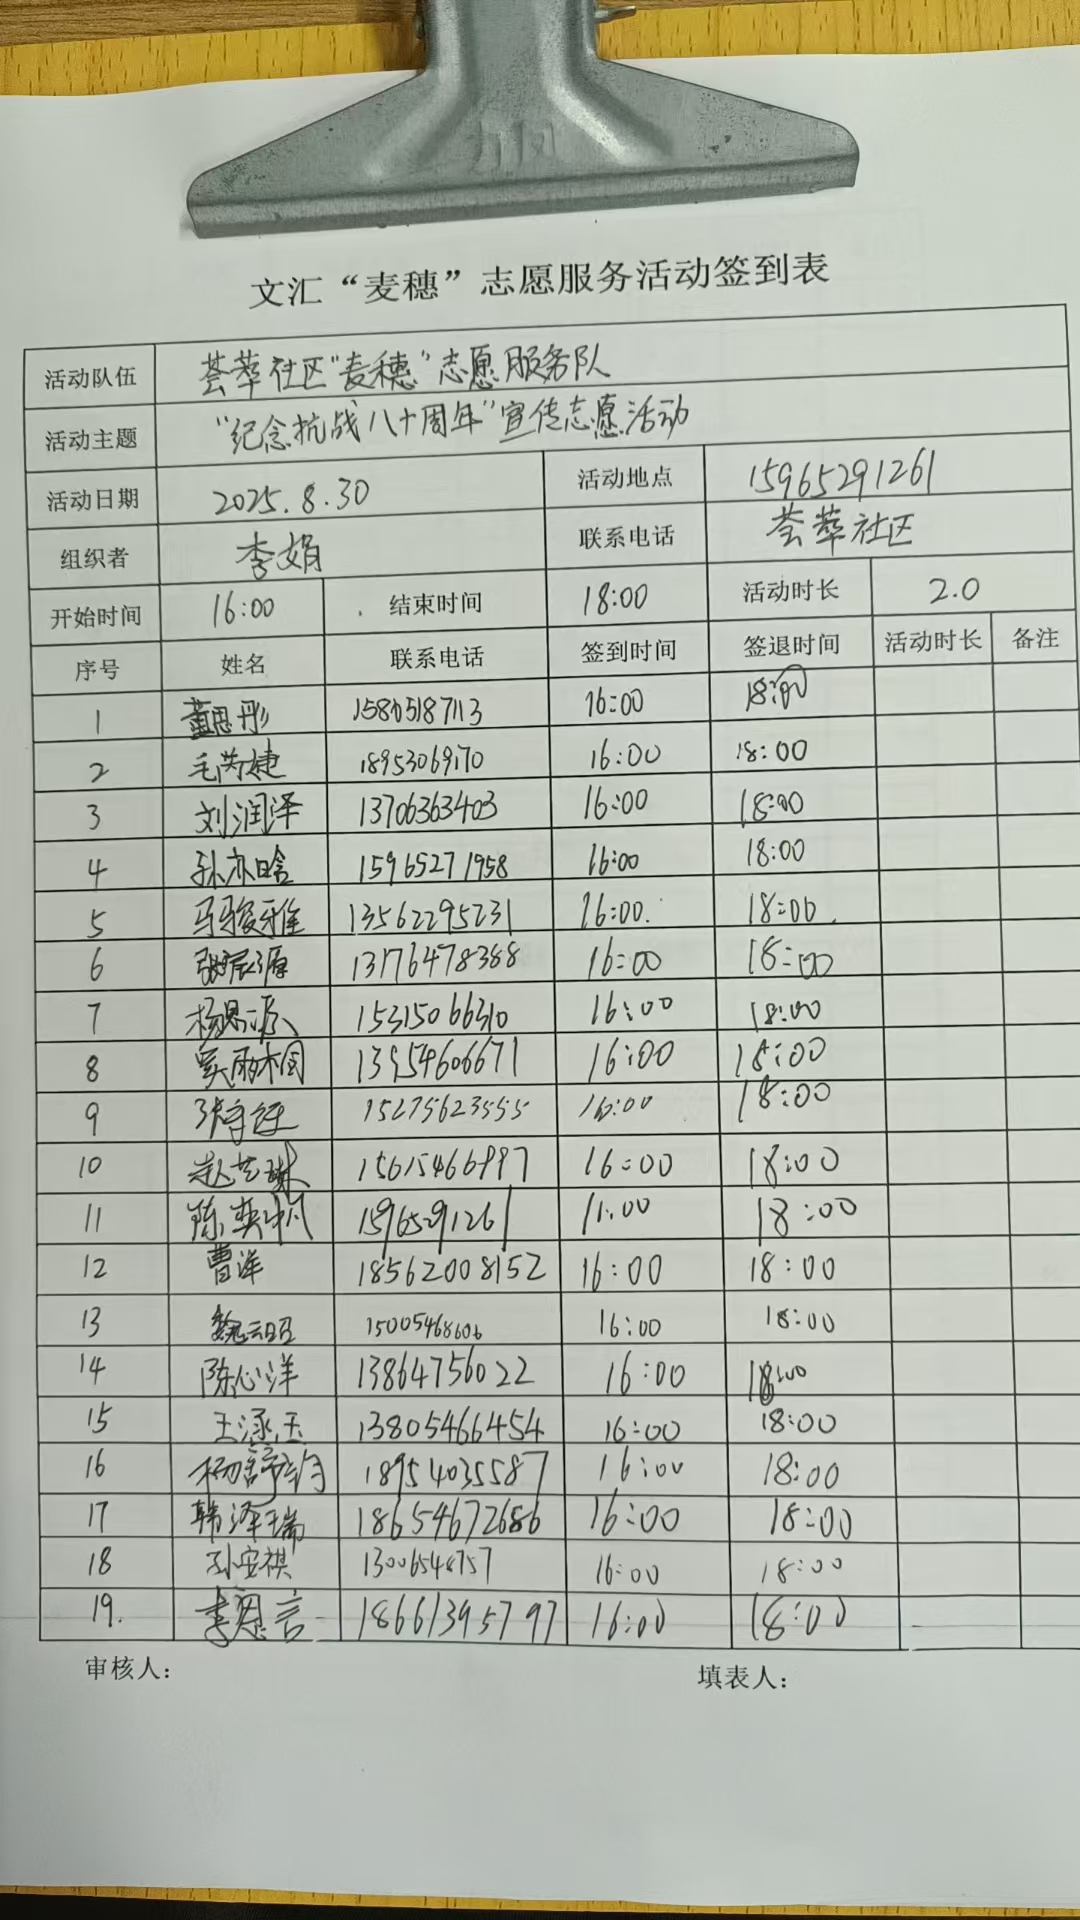 文汇“麦穗”志愿服务活动签到表
活动队伍 荟萃社区“麦穗”志愿服务队
活动主题 “纪念抗战八十周年”宣传志愿活动
活动日期 2025.8.30 活动地点 15965291261
组织者 李娟 联系电话 荟萃社区
开始时间 16:00 结束时间 18:00 活动时长 2.0
序号 姓名 联系电话 签到时间 签退时间 活动时长 备注
1 董思彤 15805187113 16:00 18:00
2 毛芮婕 18953069170 16:00 18:00
3 刘润泽 13706363403 16:00 18:00
4 孙亦晗 15965271958 16:00 18:00
5 马骏雅 13562295231 16:00 18:00
6 张宸源 13176478388 16:00 18:00
7 15315066310 16:00 18:00
8 13954606671 16:00 18:00
9 15275623555 16:00 18:00
10 赵艺琳 16:00 18:00
11 陈奕帆 15965291261 11:00 18:00
12 曹洋 18562008152 16:00 18:00
13 魏云昭 15005468606 16:00 18:00
14 陈心洋 13864756022 16:00 18:00
15 王涵玉 13805466454 16:00 18:00
16 杨舒韵 18954035587 16:00 18:00
17 韩泽瑞 18654672686 16:00 18:00
18 孙安祺 16:00 18:00
19. 李恩言 18661395797 16:00 18:00
审核人： 填表人：